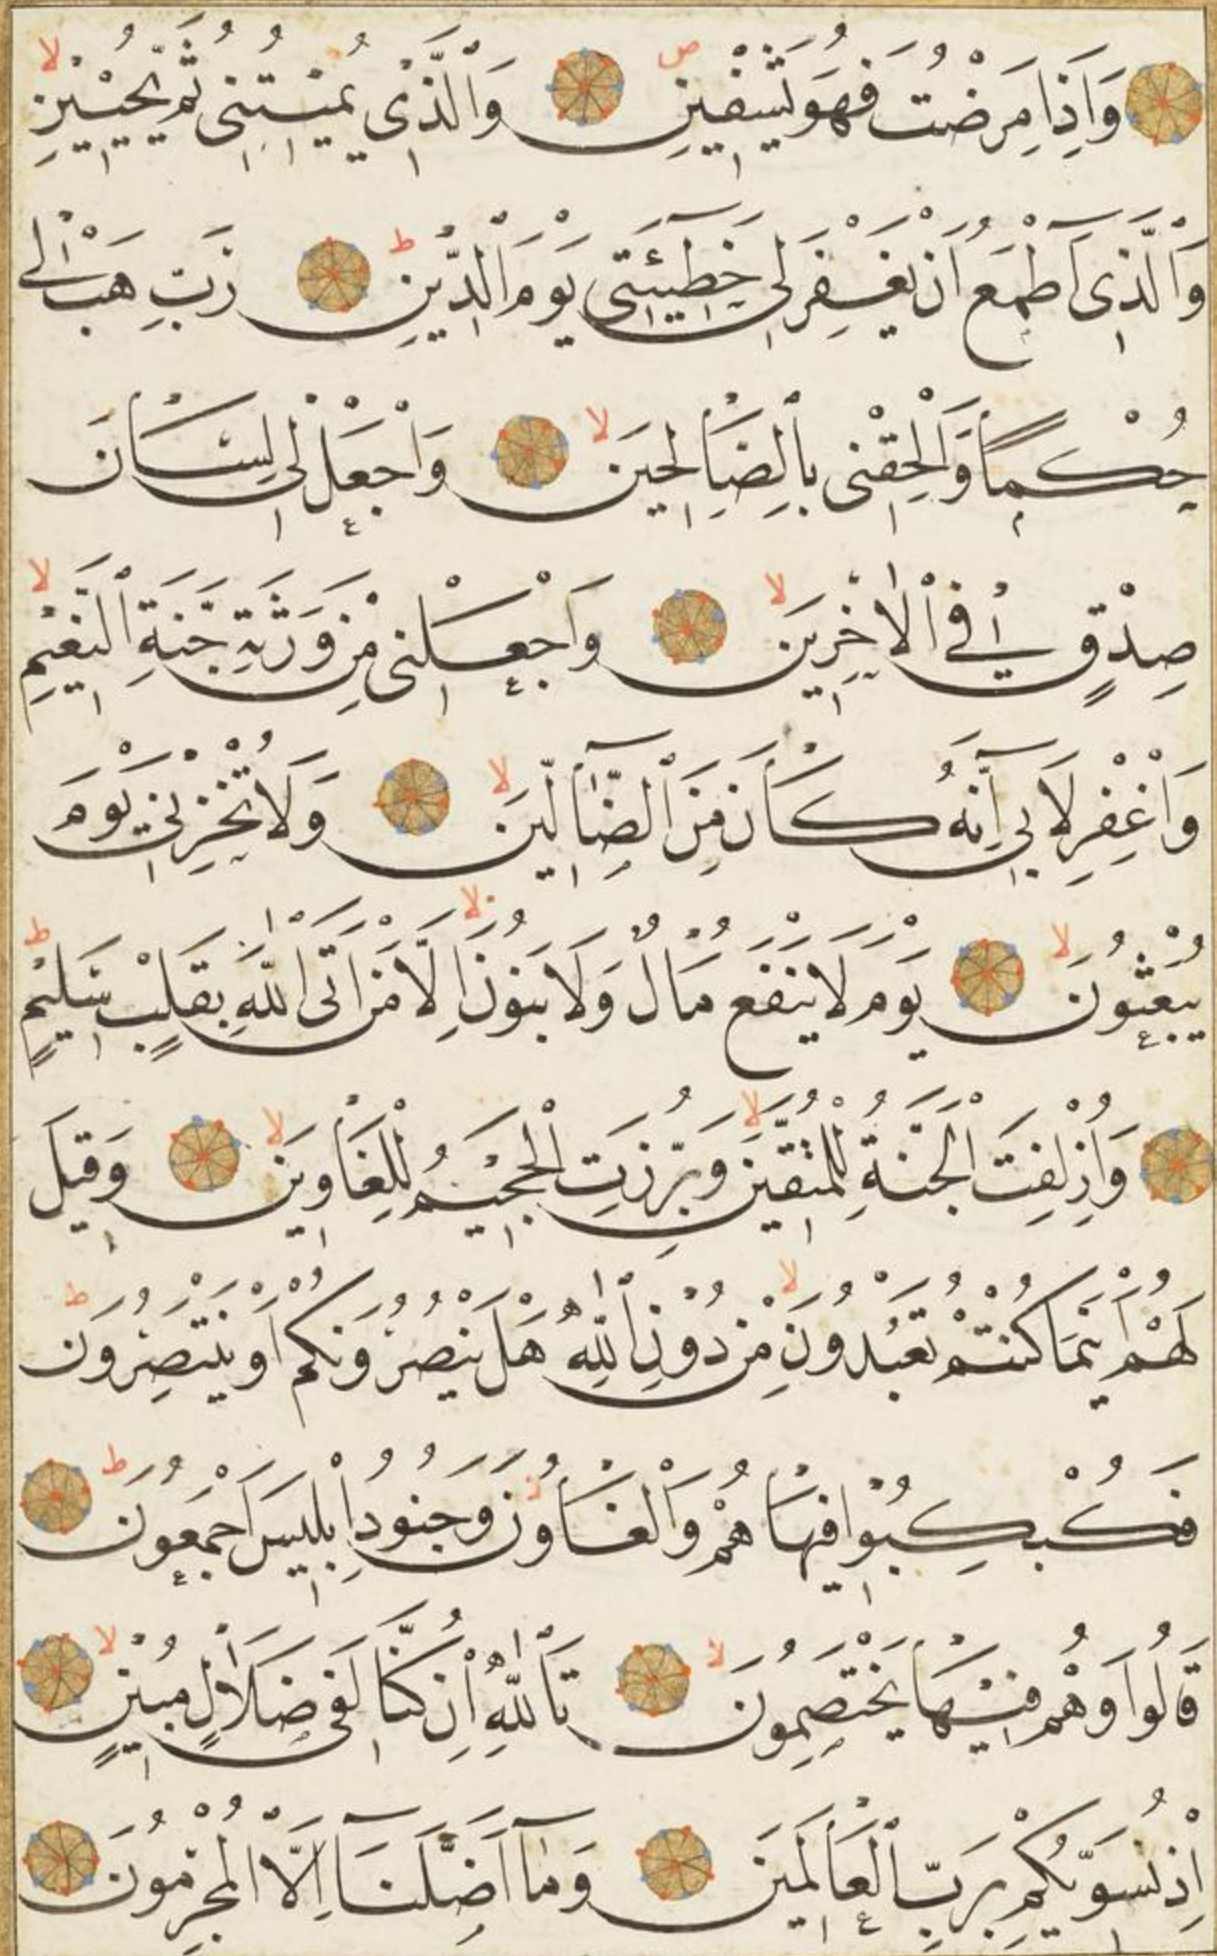 وَاِذَا مَرِضْتُ فَهُوَ يَشْفِينِ ص وَالَّذِي يُمِيتُنِي ثُمَّ يُحْيِينِ لا
وَالَّذِي اَطْمَعُ اَنْ يَغْفِرَ لِي خَطِيئَتِي يَوْمَ الدِّينِ ط رَبِّ هَبْ لِي
حُكْمًا وَاَلْحِقْنِي بِالصَّالِحِينَ لا وَاجْعَلْ لِي لِسَانَ
صِدْقٍ فِي الْاٰخِرِينَ لا وَاجْعَلْنِي مِنْ وَرَثَةِ جَنَّةِ النَّعِيمِ لا
وَاغْفِرْ لِاَبِي اِنَّهُ كَانَ مِنَ الضَّالِّينَ لا وَلَا تُخْزِنِي يَوْمَ
يُبْعَثُونَ لا يَوْمَ لَا يَنْفَعُ مَالٌ وَلَا بَنُونَ لا اِلَّا مَنْ اَتَى اللّٰهَ بِقَلْبٍ سَلِيمٍ ط
وَاُزْلِفَتِ الْجَنَّةُ لِلْمُتَّقِينَ لا وَبُرِّزَتِ الْجَحِيمُ لِلْغَاوِينَ لا وَقِيلَ
لَهُمْ اَيْنَمَا كُنْتُمْ تَعْبُدُونَ لا مِنْ دُونِ اللّٰهِ هَلْ يَنْصُرُونَكُمْ اَوْ يَنْتَصِرُونَ ط
فَكُبْكِبُوا فِيهَا هُمْ وَالْغَاوُونَ وَجُنُودُ اِبْلِيسَ اَجْمَعُونَ ط
قَالُوا وَهُمْ فِيهَا يَخْتَصِمُونَ لا تَاللّٰهِ اِنْ كُنَّا لَفِي ضَلَالٍ مُبِينٍ لا
اِذْ نُسَوِّيكُمْ بِرَبِّ الْعَالَمِينَ وَمَا اَضَلَّنَا اِلَّا الْمُجْرِمُونَ